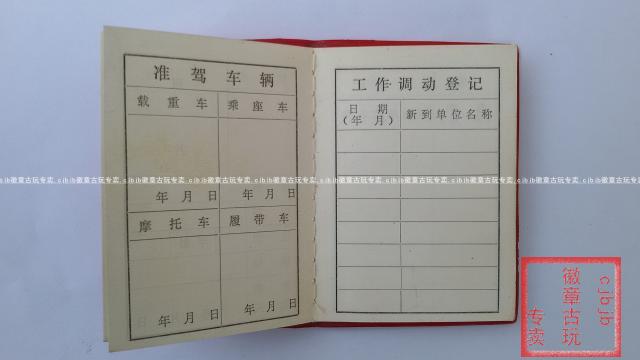 准驾车辆
载重车 乘座车
年月日 年月日
摩托车 履带车
年月日 年月日
工作调动登记
日期
(年 月) 新到单位名称
cjbjb徽章古玩专卖 cjbjb徽章古玩专卖 cjbjb徽章古玩专卖 cjbjb徽章古玩专卖 cjbjb徽章古玩专卖 cjbjb徽章古玩专卖
cjbjb
徽章古玩
专卖